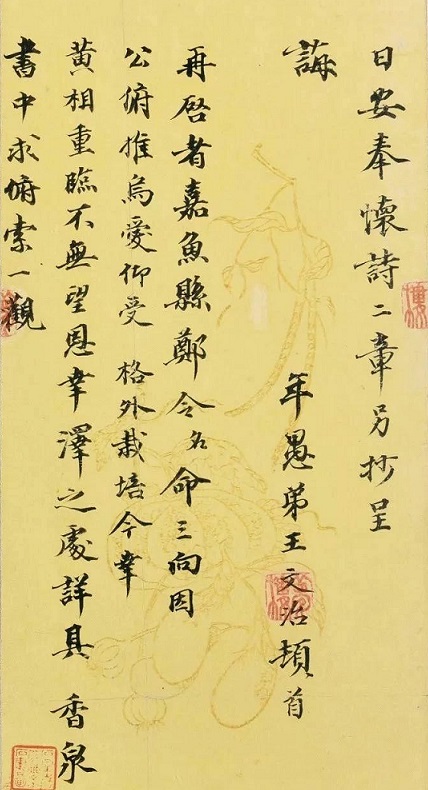 日安奉懷詩二章另抄呈
誨
年愚弟王文治頓首
再啓者嘉魚縣鄭令名命三向因
公俯推烏愛仰受格外栽培今幸
黃相重臨不無望恩幸澤之處詳具香泉
書中求俯索一觀